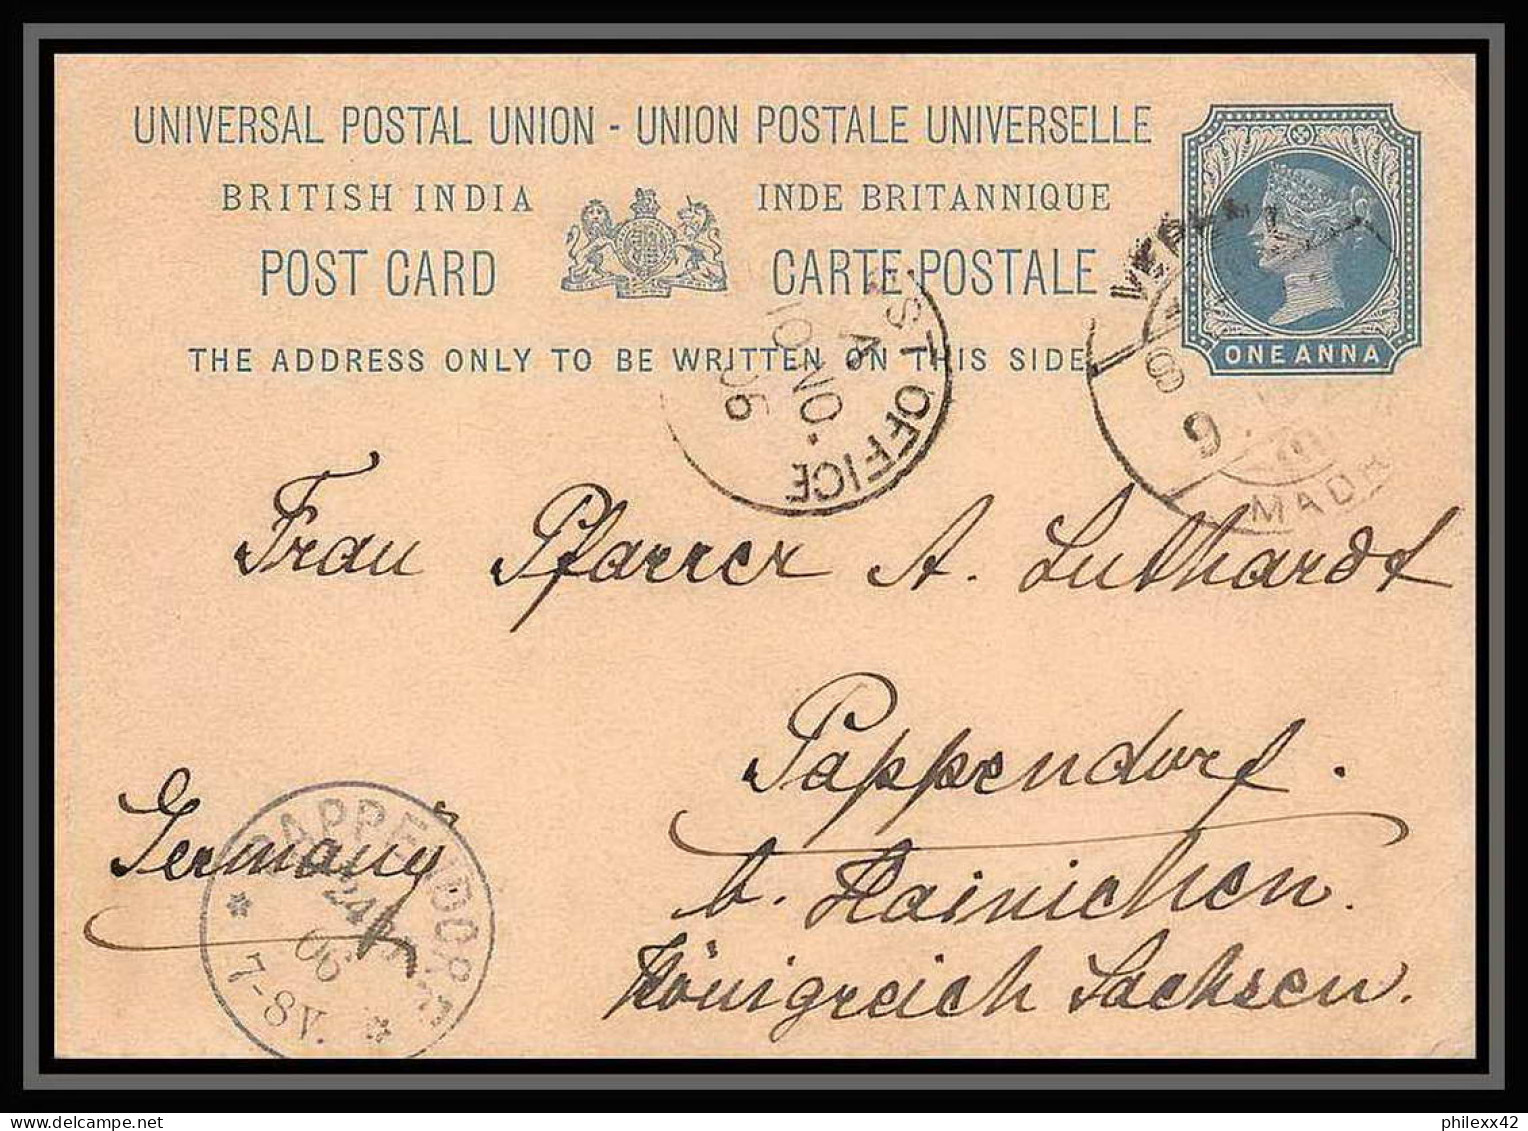 UNIVERSAL POSTAL UNION - UNION POSTALE UNIVERSELLE
BRITISH INDIA INDE BRITANNIQUE
POST CARD CARTE POSTALE
ONE ANNA
THE ADDRESS ONLY TO BE WRITTEN ON THIS SIDE
OFFICE
A
10 NO.
06
Frau Pfarrer A. Luthardt
Pappendorf.
b. Hainichen.
Königreich Sachsen.
Germany
PAPPENDORF
24
06
7-8V.
philexx42